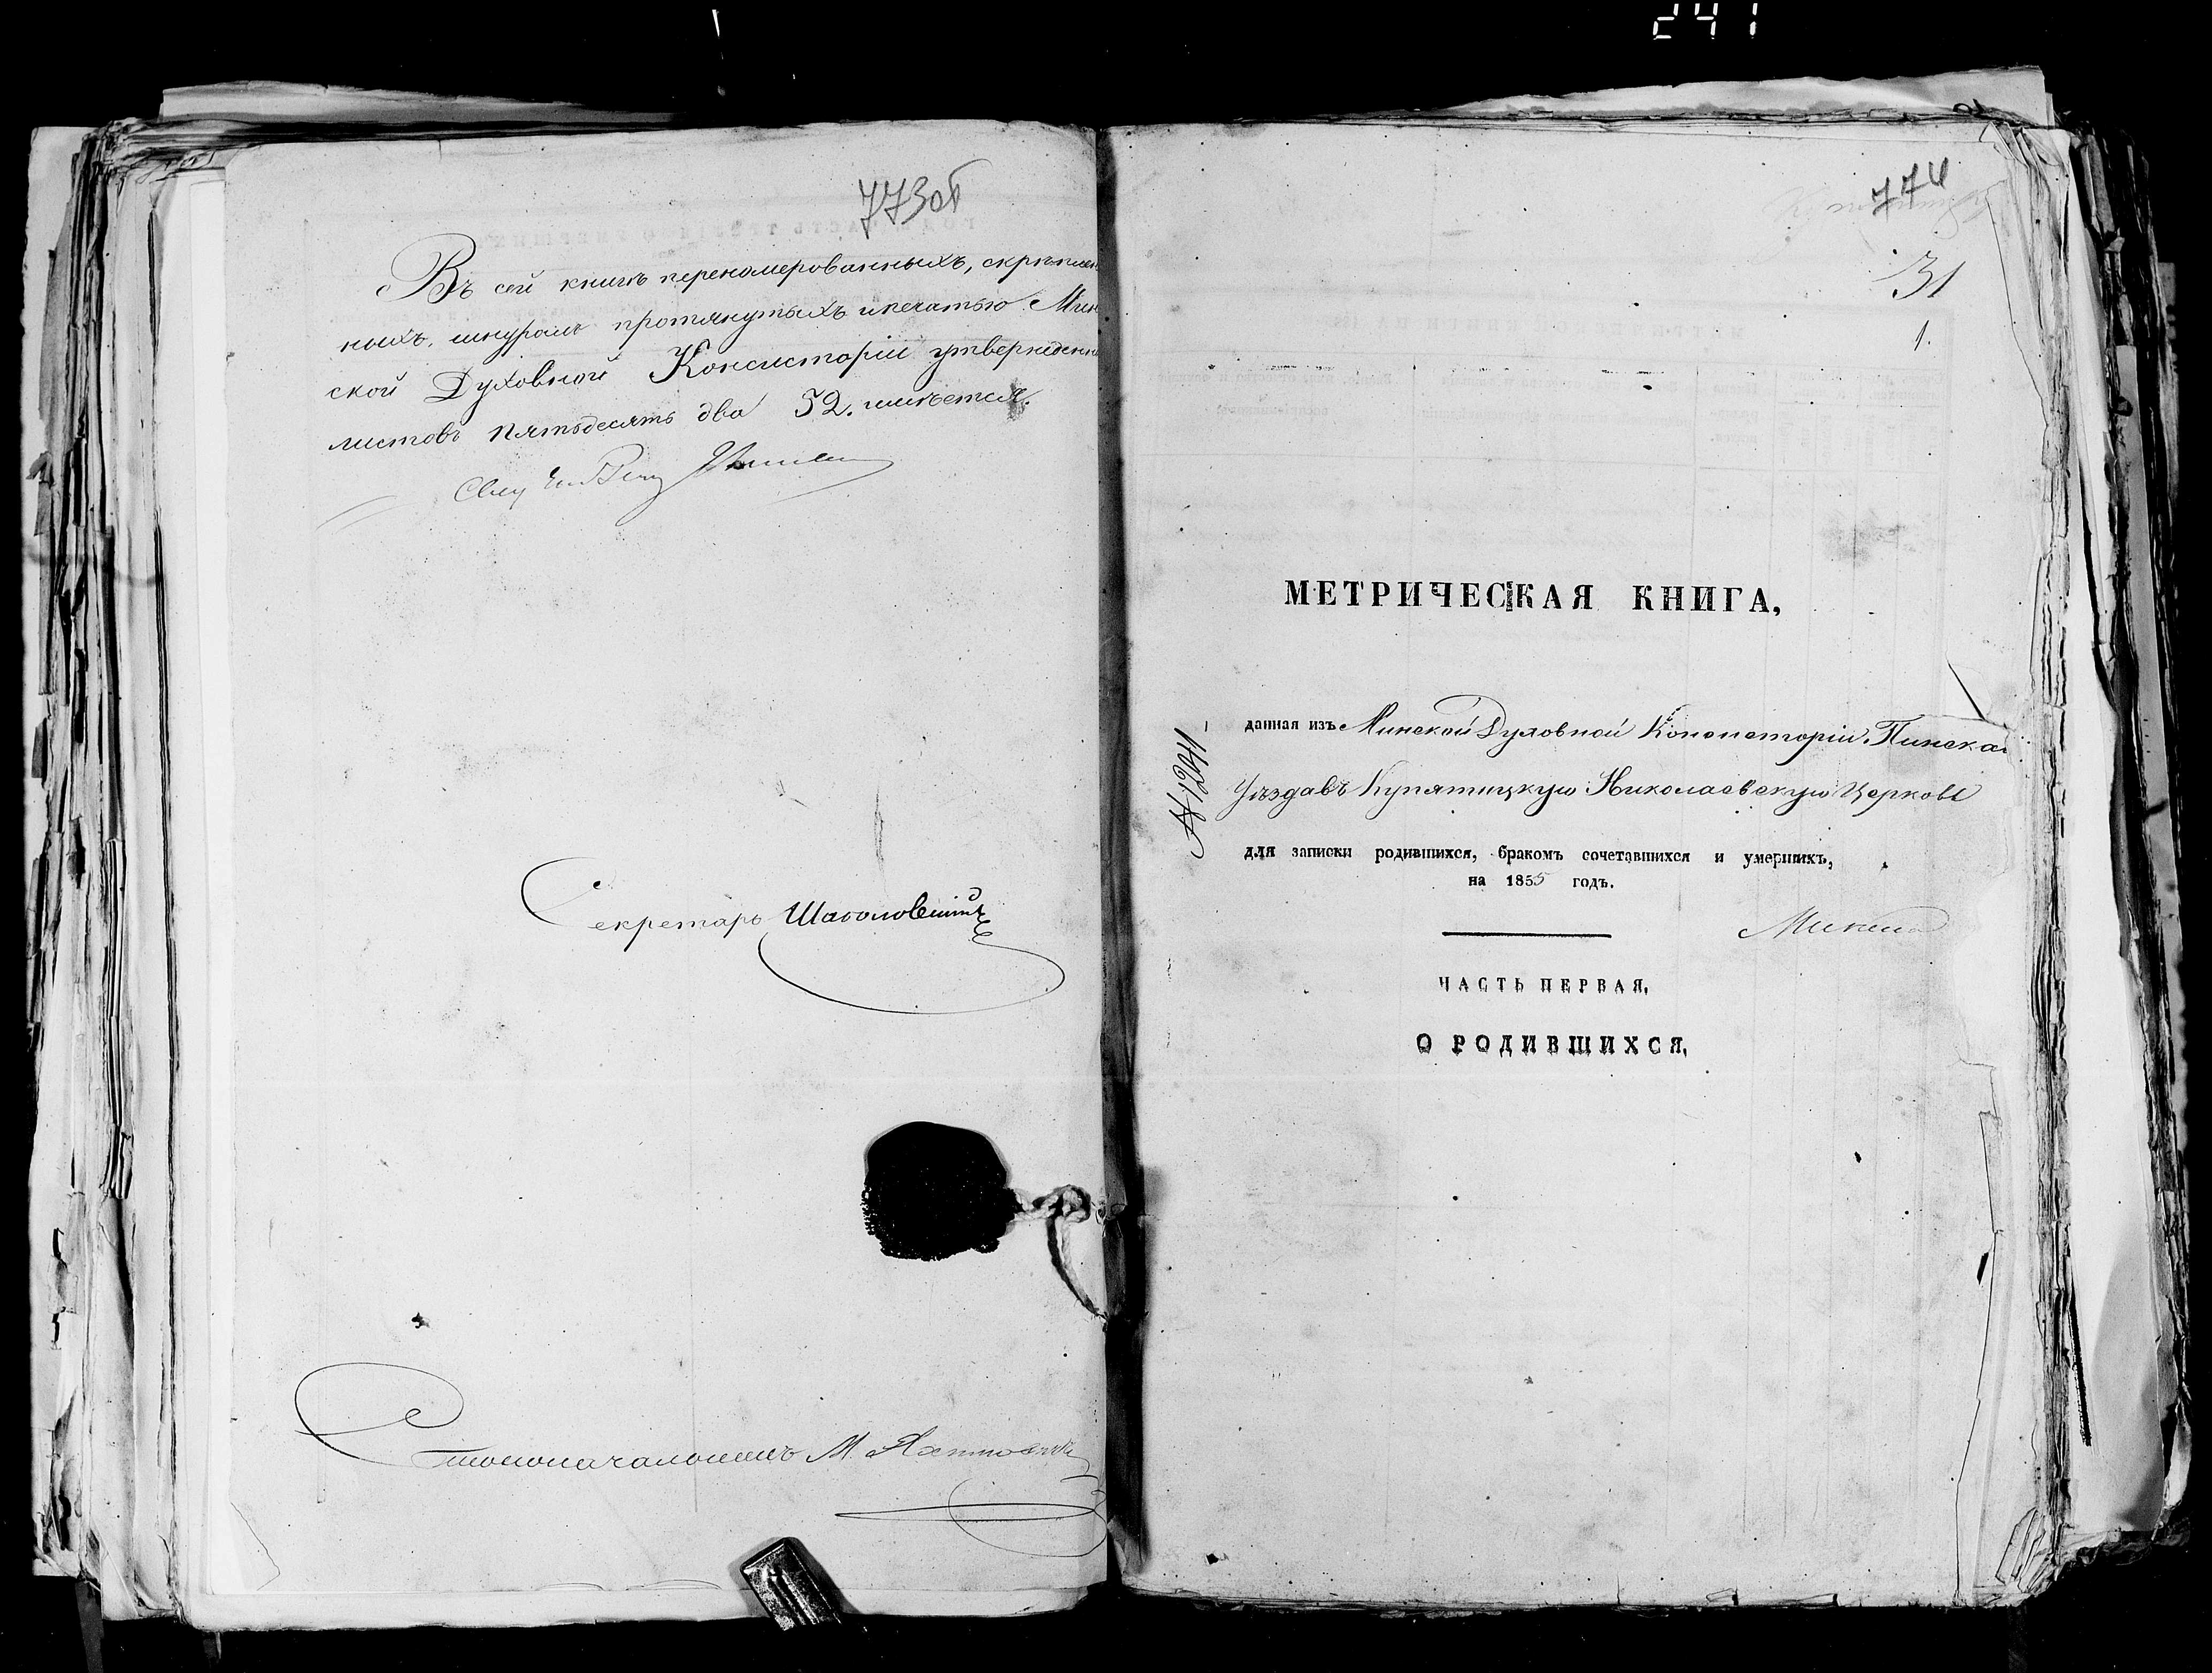 241
773об
Въ сей книгѣ перенумерованныхъ, скрѣплен
ныхъ, шнуромъ протянутыхъ и печатью Мин
ской Духовной Консисторіи утвержденны
листовъ пятьдесятъ два 52. имѣется.
Секретарь
Столоначальникъ М.
774
31
1.
МЕТРИЧЕСКАЯ КНИГА,
данная изъ Минской Духовной Консисторіи Пинска
Уѣзда въ Купятицкую Николаевскую Церковь
для записки родившихся, бракомъ сочетавшихся и умершихъ,
на 1855 годъ.
№ 1244
ЧАСТЬ ПЕРВАЯ,
О РОДИВШИХСЯ,